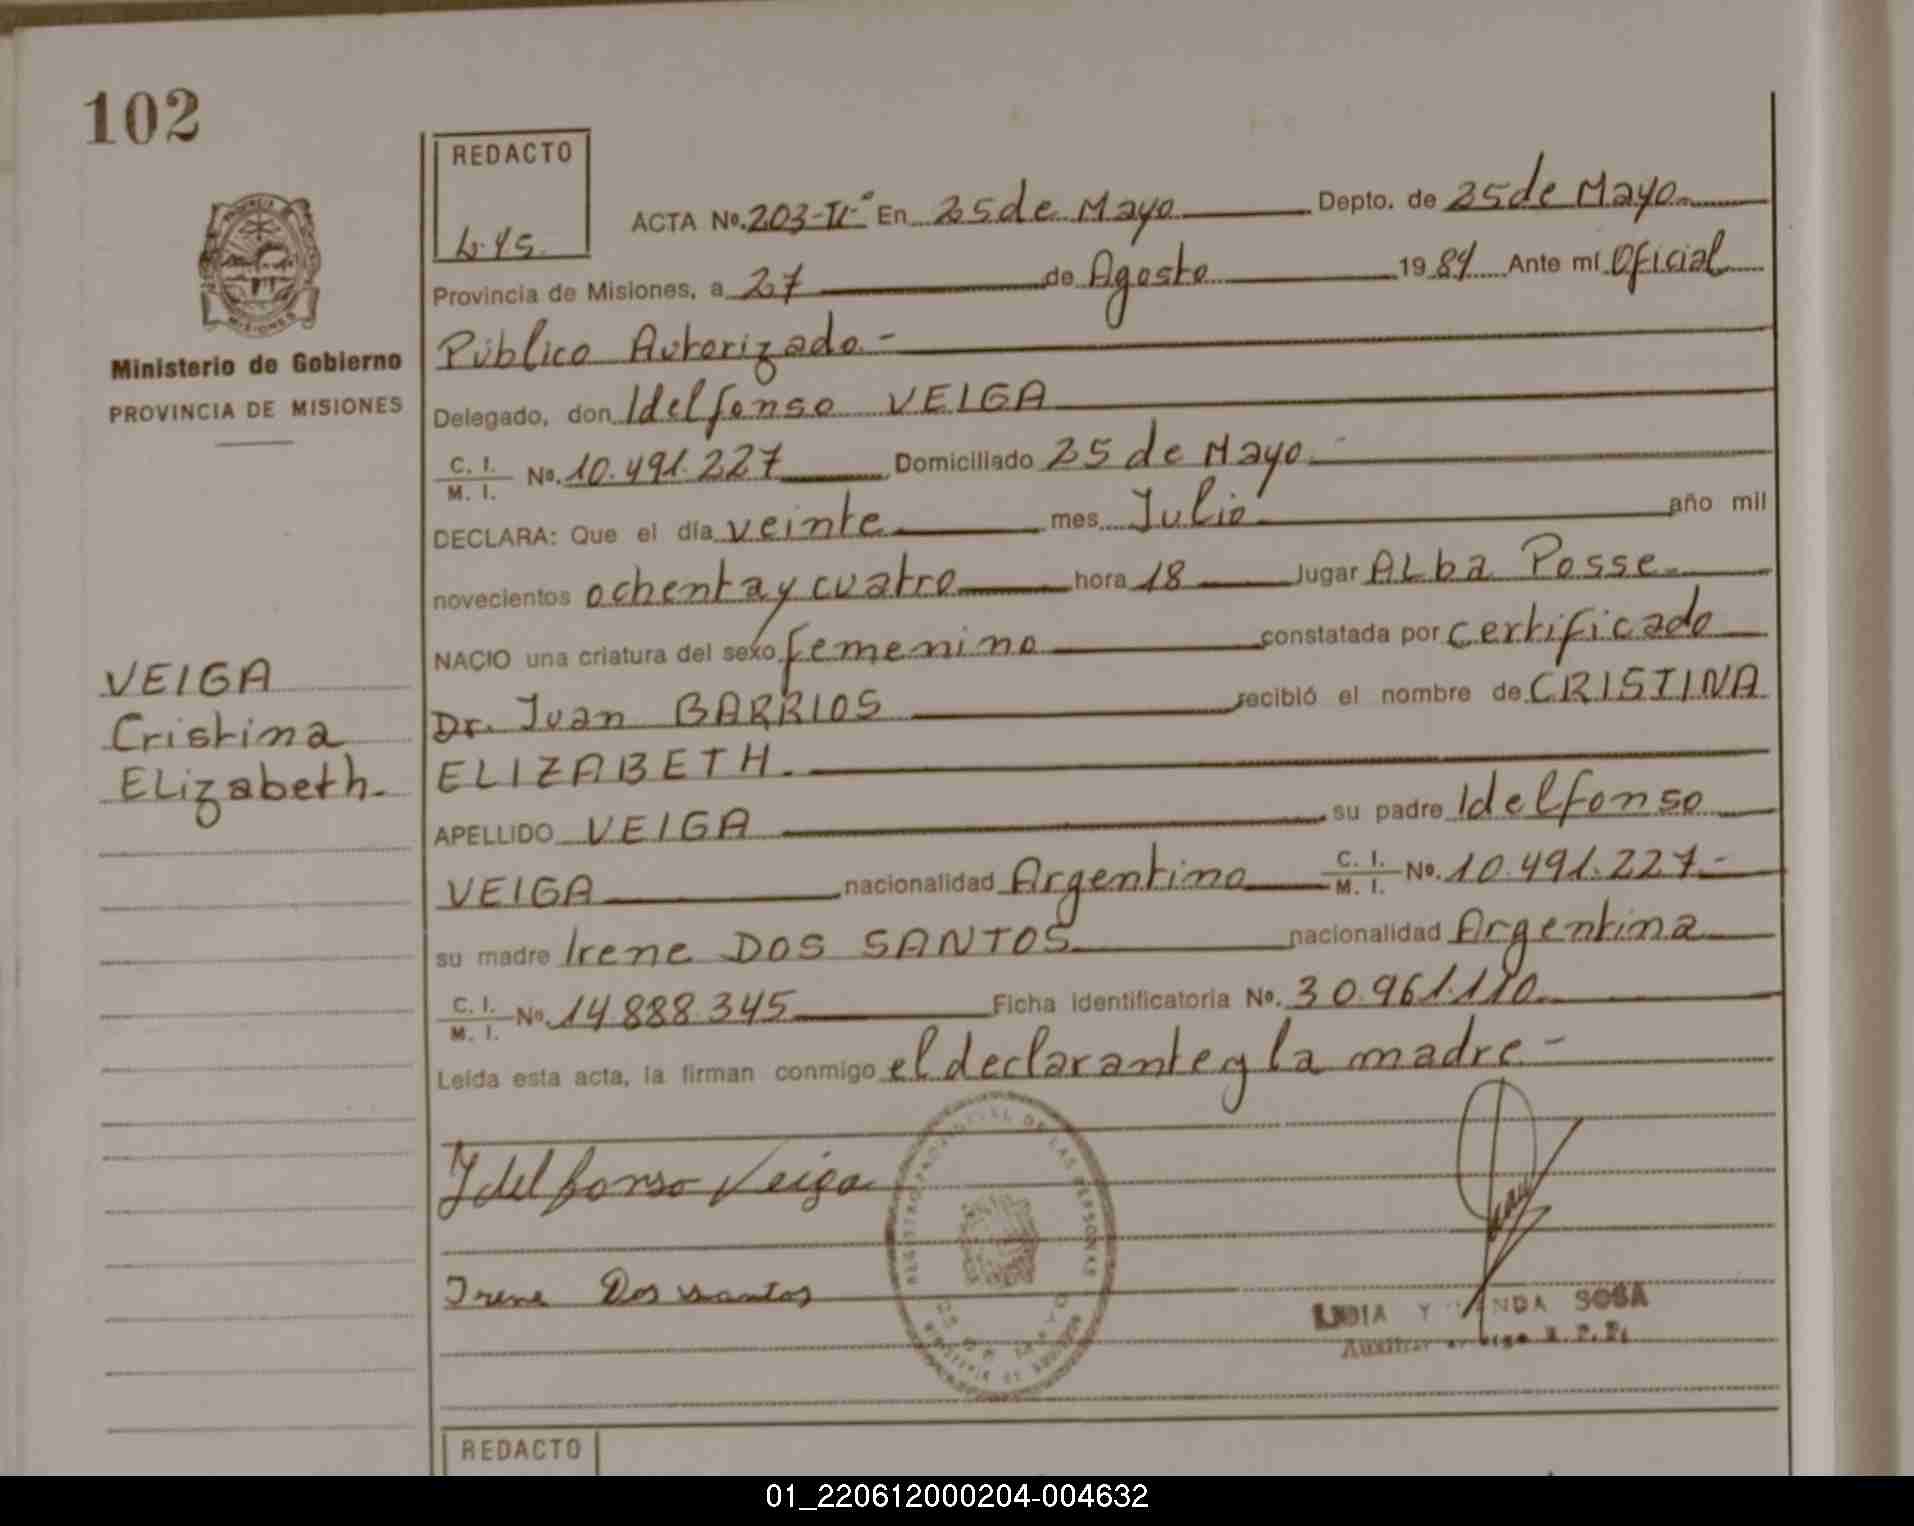 102
REDACTO
ACTA No. 203-IIº En 25 de Mayo Depto. de 25 de Mayo
Provincia de Misiones, a 27 de Agosto 1984 Ante mí Oficial
Público Autorizado.-
Delegado, don Idelfonso VEIGA
C. I.
M. I. No. 10.491.227 Domiciliado 25 de Mayo.-
DECLARA: Que el día veinte mes Julio año mil
novecientos ochenta y cuatro hora 18 lugar ALba Posse
NACIO una criatura del sexo femenino constatada por certificado
Dr. Juan BARRIOS recibió el nombre de CRISTINA
ELIZABETH.
APELLIDO VEIGA su padre Idelfonso
VEIGA nacionalidad Argentino C. I.
M. I. No. 10.491.227.-
su madre Irene DOS SANTOS nacionalidad Argentina
C. I.
M. I. No. 14.888.345 Ficha identificatoria No. 30.961.110
Leída esta acta, la firman conmigo el declarante y la madre.-
Idelfonso Veiga
Irene Dos santos
REGISTRO PROVINCIAL DE LAS PERSONAS
SOSA
REDACTO
PROVINCIA DE
MISIONES
Ministerio de Gobierno
PROVINCIA DE MISIONES
VEIGA
Cristina
ELizabeth.-
01_220612000204-004632